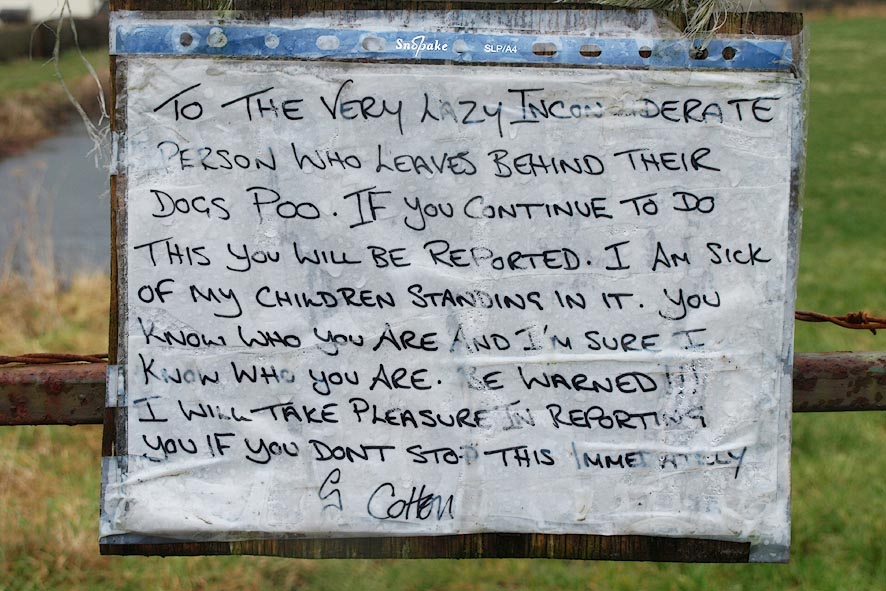 Snopake SLP/A4
TO THE VERY LAZY INCONSIDERATE
PERSON WHO LEAVES BEHIND THEIR
DOGS POO. IF YOU CONTINUE TO DO
THIS YOU WILL BE REPORTED. I AM SICK
OF MY CHILDREN STANDING IN IT. YOU
KNOW WHO YOU ARE AND I'M SURE I
KNOW WHO YOU ARE. BE WARNED !!!
I WILL TAKE PLEASURE IN REPORTING
YOU IF YOU DONT STOP THIS IMMEDIATELLY
G Cotten